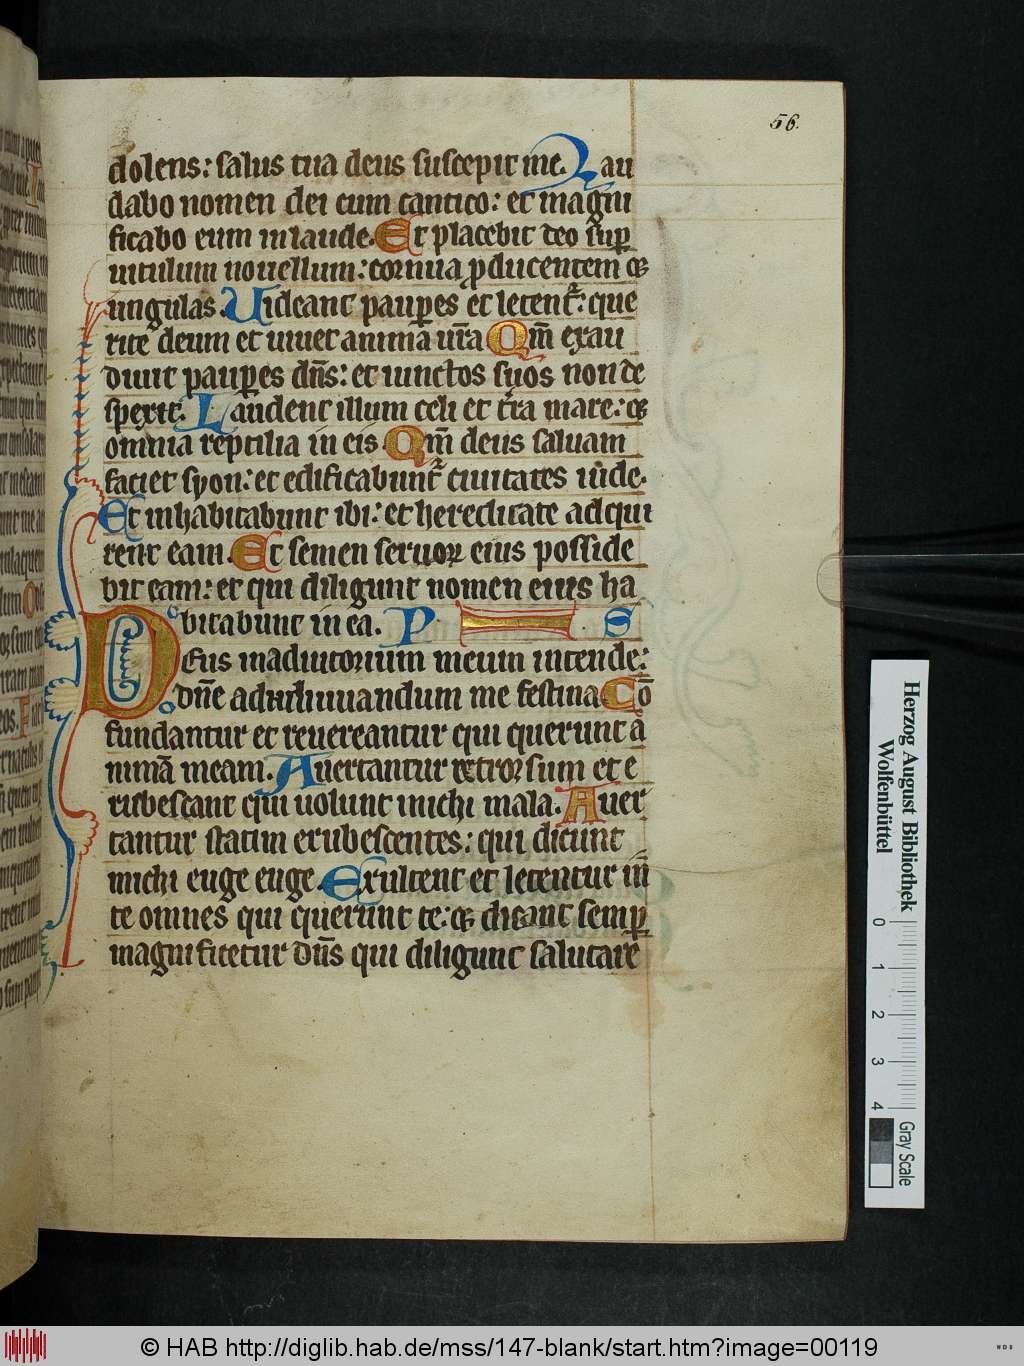 56.
dolens: salus tua deus suscepit me. Lau
dabo nomen dei cum cantico: et magni
ficabo eum in laude. Et placebit deo sup̄
uitulum nouellum: cornua ꝓducentem ⁊
ungulas. Uideant paup̄es et letent᷑: que
rite deum et uiuet anima ur̄a Qm̄ exau
diuit paup̄es dn̄s: et uinctos suos non de
spexit. Laudent illum celi et t̄ra mare: ⁊
omnia reptilia in eis Qm̄ deus saluam
faciet syon: et edificabunt᷑ ciuitates iude.
Et inhabitabunt ibi: et hereditate adqui
rent eam. Et semen seruoꝝ eius posside
bit eam: et qui diligunt nomen eius ha
bitabunt in ea. P S
Deus in adiutorium meum intende:
dn̄e ad iuuandum me festina Cō
fundantur et reuereantur qui querunt a
nimā meam. Auertantur retrorsum et e
rubescant qui uolunt michi mala. Auer
tantur statim erubescentes: qui dicunt
michi euge euge. Exultent et letentur in
te omnes qui querunt te: ⁊ dicant semp̄
magnificetur dn̄s qui diligunt salutare
Herzog August Bibliothek
Wolfenbüttel
0 1 2 3 4
Gray Scale
© HAB http://diglib.hab.de/mss/147-blank/start.htm?image=00119